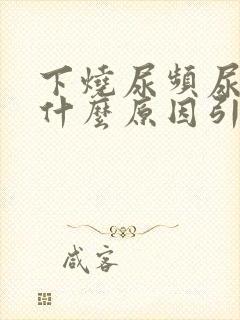 下燒尿頻尿
什麼原因引
咸客